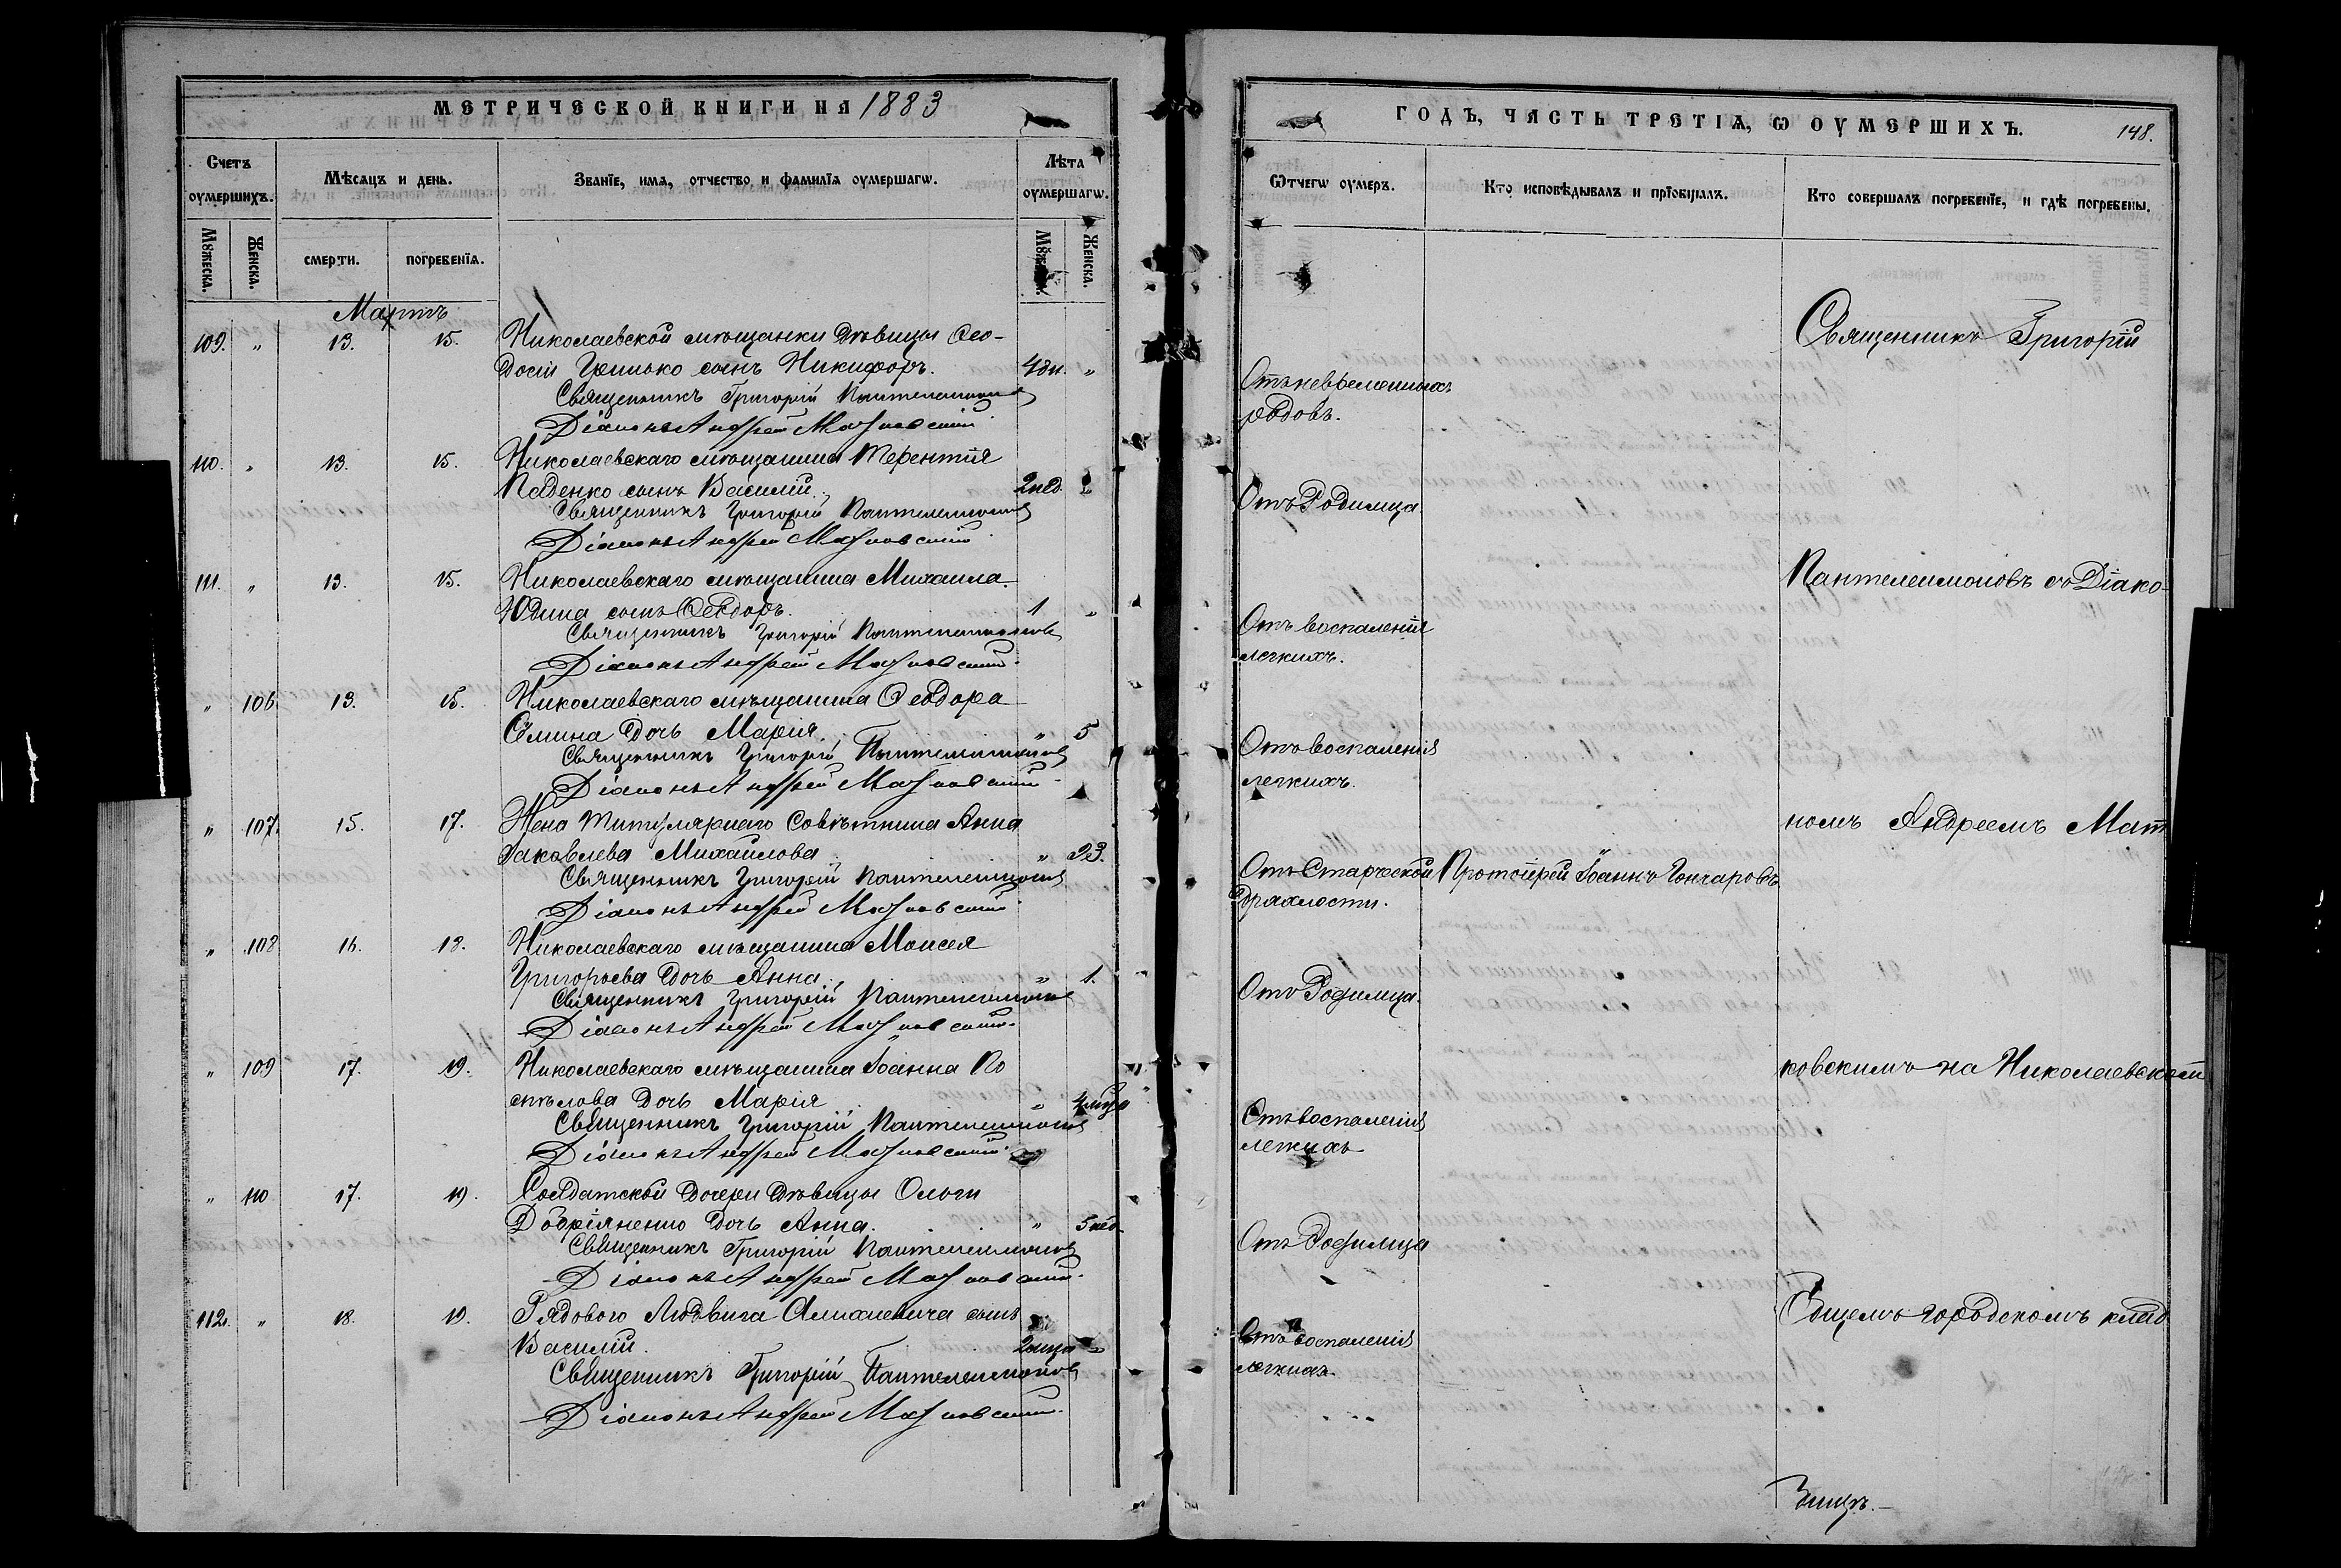 МЕТРИЧЕСКОЙ КНИГИ НА 1883
Счетъ оумершихъ.
Мѣсяцъ и день.
Званїе, имя, отчество и фамилїя оумершагѡ.
Лѣта оумершагѡ.
Мꙋжеска. Женска. смерти. погребенїя. Женска.
Мартъ
109. „ 13. 15. Николаевской мѣщанки дѣвицы Ѳео-
досіи Гришько сынъ Никифоръ. 4 дн. „
Священникъ Григорій Пантелеимоновъ
Діаконъ Андрей Матковскій
110. „ 13. 15. Николаевскаго мѣщанина Терентія
Паденко сынъ Василій. 2 нед. „
Священникъ Григорій Пантелеимоновъ
Діаконъ Андрей Матковскій
111. „ 13. 15. Николаевскаго мѣщанина Михаила
Юдина сынъ Ѳеодоръ. 1 „
Священникъ Григорій Пантелеимоновъ
Діаконъ Андрей Матковскій
„ 106. 13. 15. Николаевскаго мѣщанина Ѳеодора
Ѳомина дочь Марія. „ 5
Священникъ Григорій Пантелеимоновъ
Діаконъ Андрей Матковскій
„ 107. 15. 17. Жена Титулярнаго Совѣтника Анна
Яковлева Михайлова „
Священникъ Григорій Пантелеимоновъ
Діаконъ Андрей Матковскій
„ 108 16. 18. Николаевскаго мѣщанина Моисея
Григорьева дочь Анна. „ 1.
Священникъ Григорій Пантелеимоновъ
Діаконъ Андрей Матковскій
„ 109 17. 19. Николаевскаго мѣщанина Іоанна По
спѣлова дочь Марія „
Священникъ Григорій Пантелеимоновъ
Діаконъ Андрей Матковскій
„ 110 17. 19. Солдатской дочери дѣвицы Ольги
дочь Анна. „ 5 нед.
Священникъ Григорій Пантелеимоновъ
Діаконъ Андрей Матковскій
112. „ 18. 19. Рядового Людвига сынъ
Василій. „
Священникъ Григорій Пантелеимоновъ
Діаконъ Андрей Матковскій
ГОДЪ, ЧАСТЬ ТРЕТІЯ, Ѡ ОУМЕРШИХЪ. 148.
Ѿтчегѡ оумеръ.
Кто исповѣдывалъ и прїобщалъ.
Кто совершалъ погребенїе, и гдѣ погребены.
Священникъ Григорій
Отъ невременныхъ
родовъ.
Отъ Родимца
Пантелеимоновъ съ Діако-
Отъ воспаленія
легкихъ.
Отъ воспаленія
легкихъ.
номъ Андреемъ Мат
Отъ Старческой Протоіерей Іоаннъ Гончаровъ
дряхлости.
Отъ Родимца.
ковскимъ на Николаевском
Отъ воспаленія
легкихъ
Отъ Родимца
Общемъ городскомъ клад
Отъ воспаленія
легкихъ.
бищѣ.